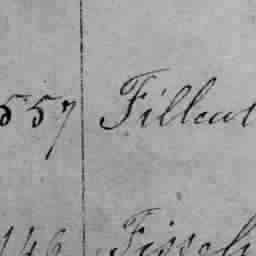 557 Filleut
146 Fisch